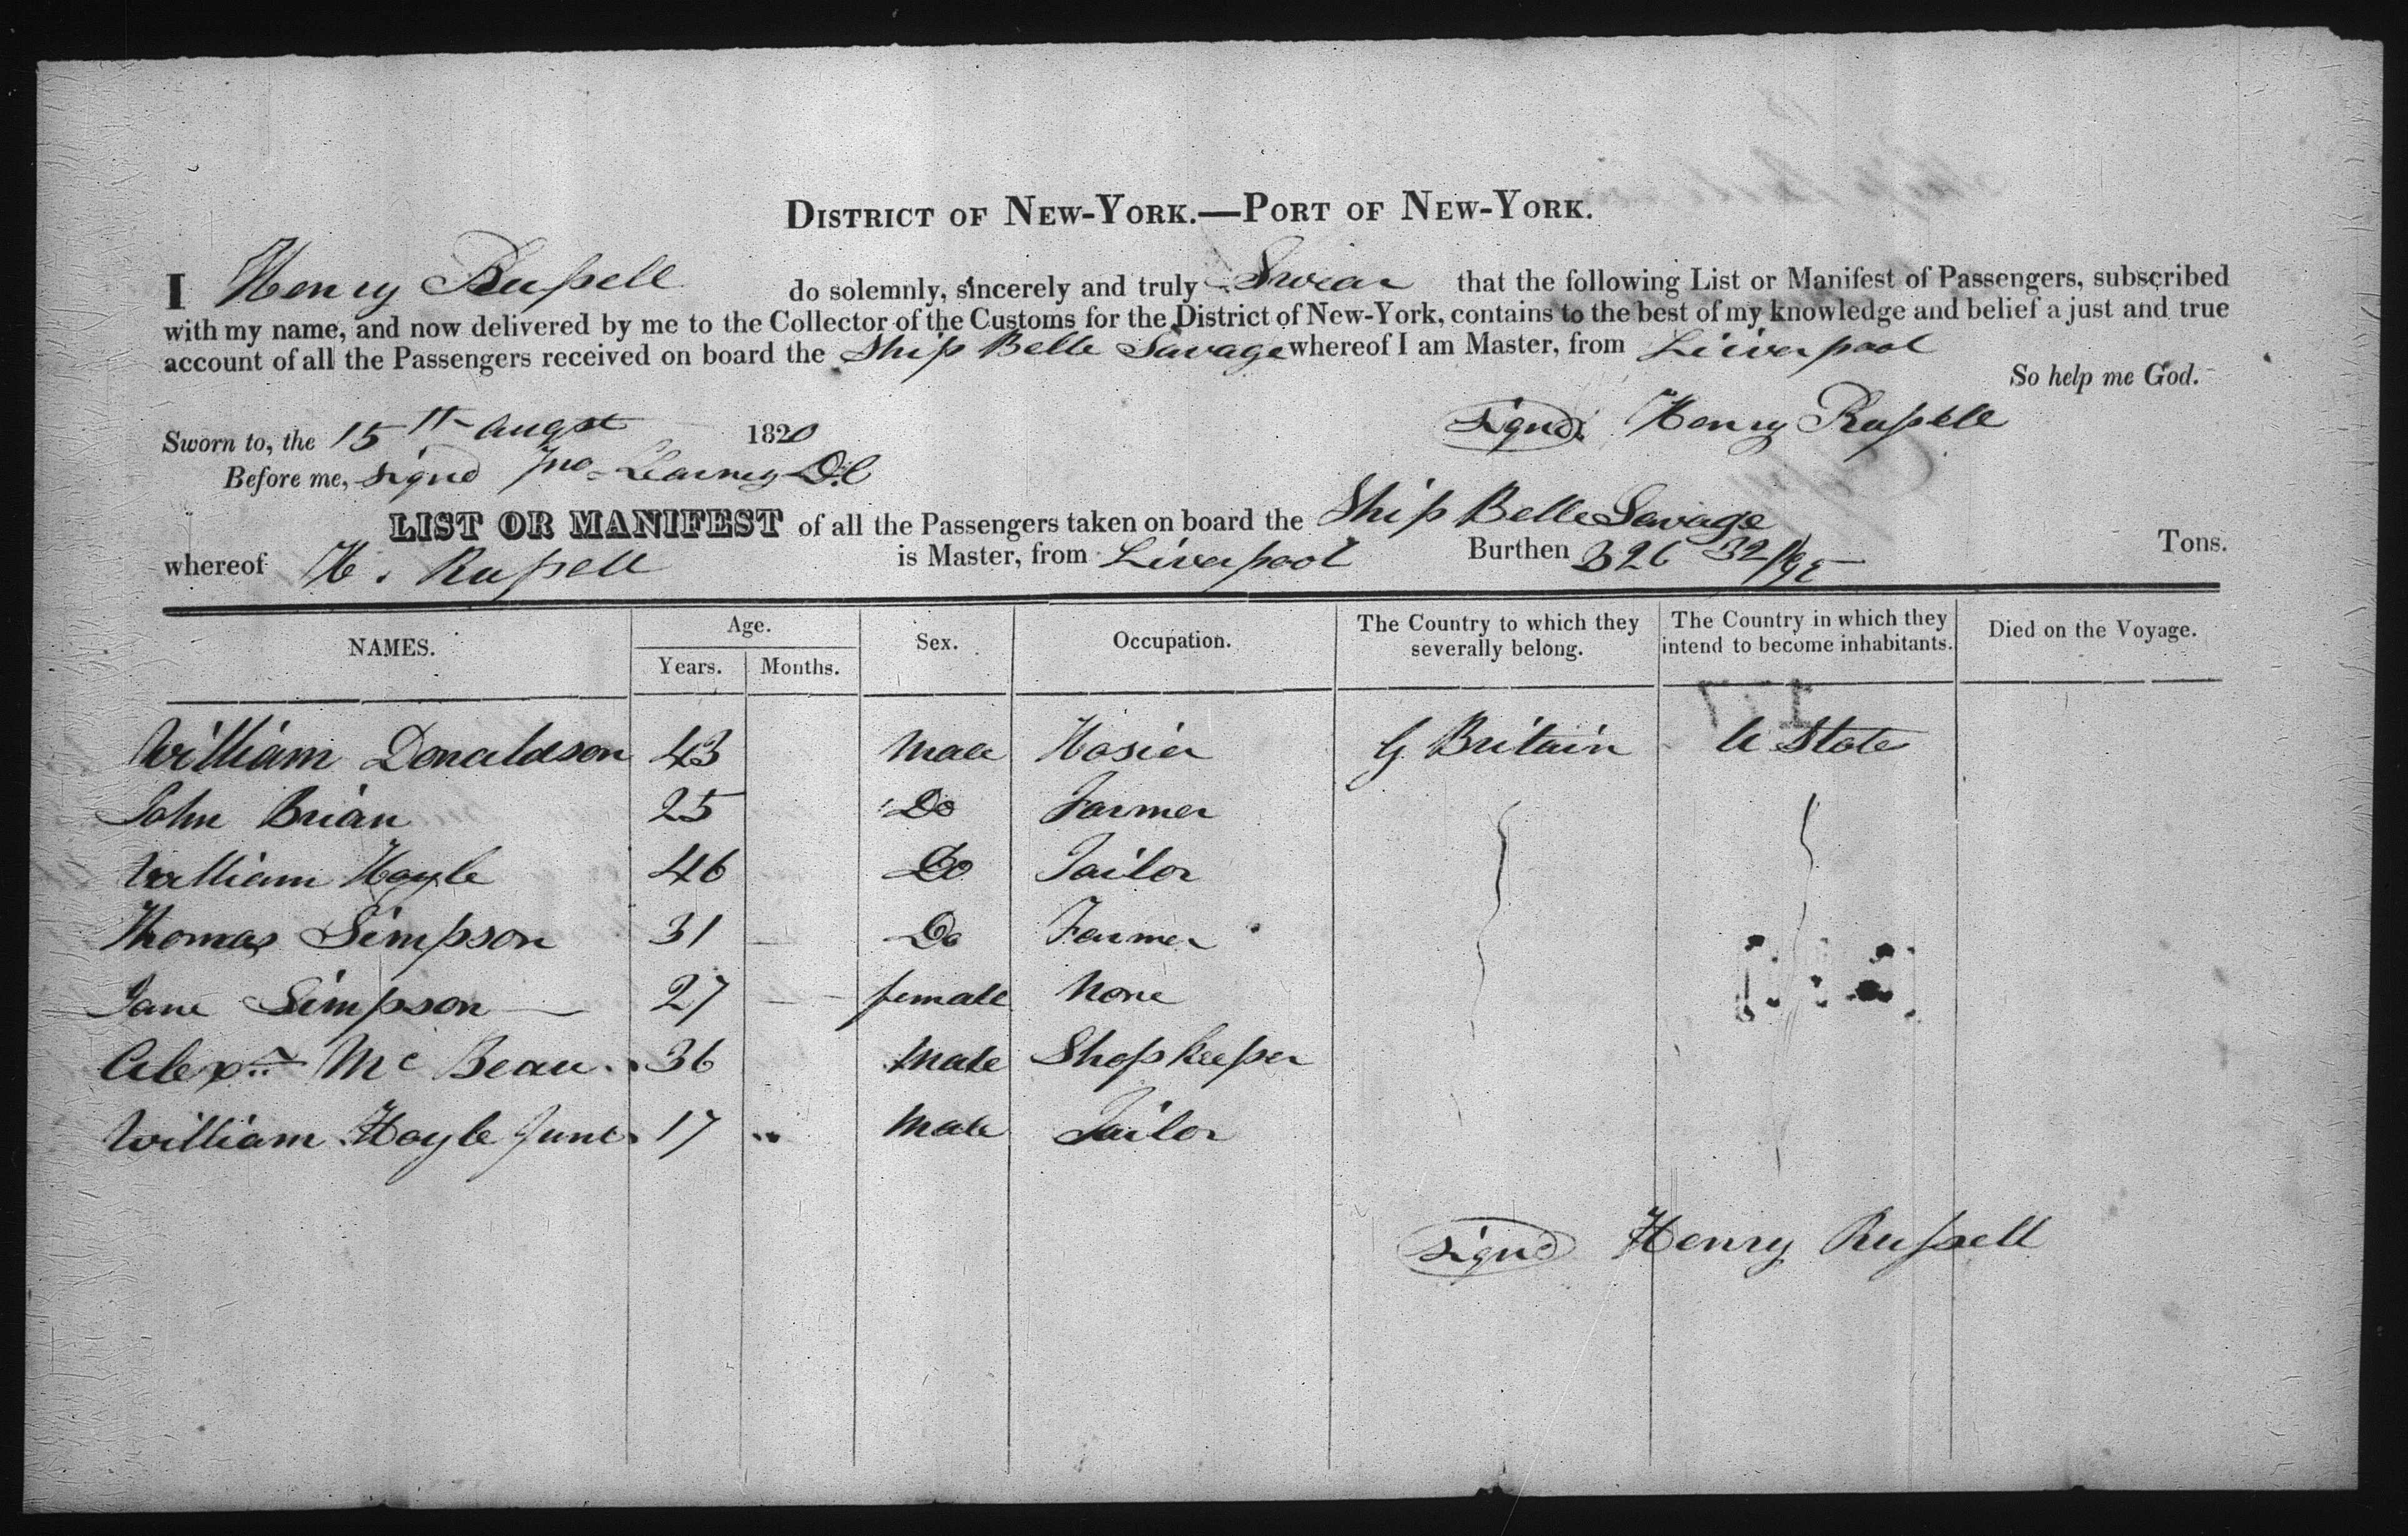 DISTRICT OF NEW-YORK.—PORT OF NEW-YORK.
I Henry Russell do solemnly, sincerely and truly Swear that the following List or Manifest of Passengers, subscribed
with my name, and now delivered by me to the Collector of the Customs for the District of New-York, contains to the best of my knowledge and belief a just and true
account of all the Passengers received on board the Ship Belle Savage whereof I am Master, from Liverpool
So help me God.
Sworn to, the 15th Augst 1820
signd Henry Russell
Before me, signd Jno. Learney D.C
LIST OR MANIFEST of all the Passengers taken on board the Ship Belle Savage
whereof H. Russell is Master, from Liverpool Burthen 326 32/95 Tons.
NAMES. Age. Years. Months. Sex. Occupation. The Country to which they severally belong. The Country in which they intend to become inhabitants. Died on the Voyage.
William Donaldson 43 Male Hosier G. Britain U State
John Brian 25 Do Farmer
William Hoyle 46 Do Tailor
Thomas Simpson 31 Do Farmer
Jane Simpson 27 female None
Alexr Mc Bean 36 Male Shopkeeper
William Hoyle Junr 17 Male Tailor
signd Henry Russell